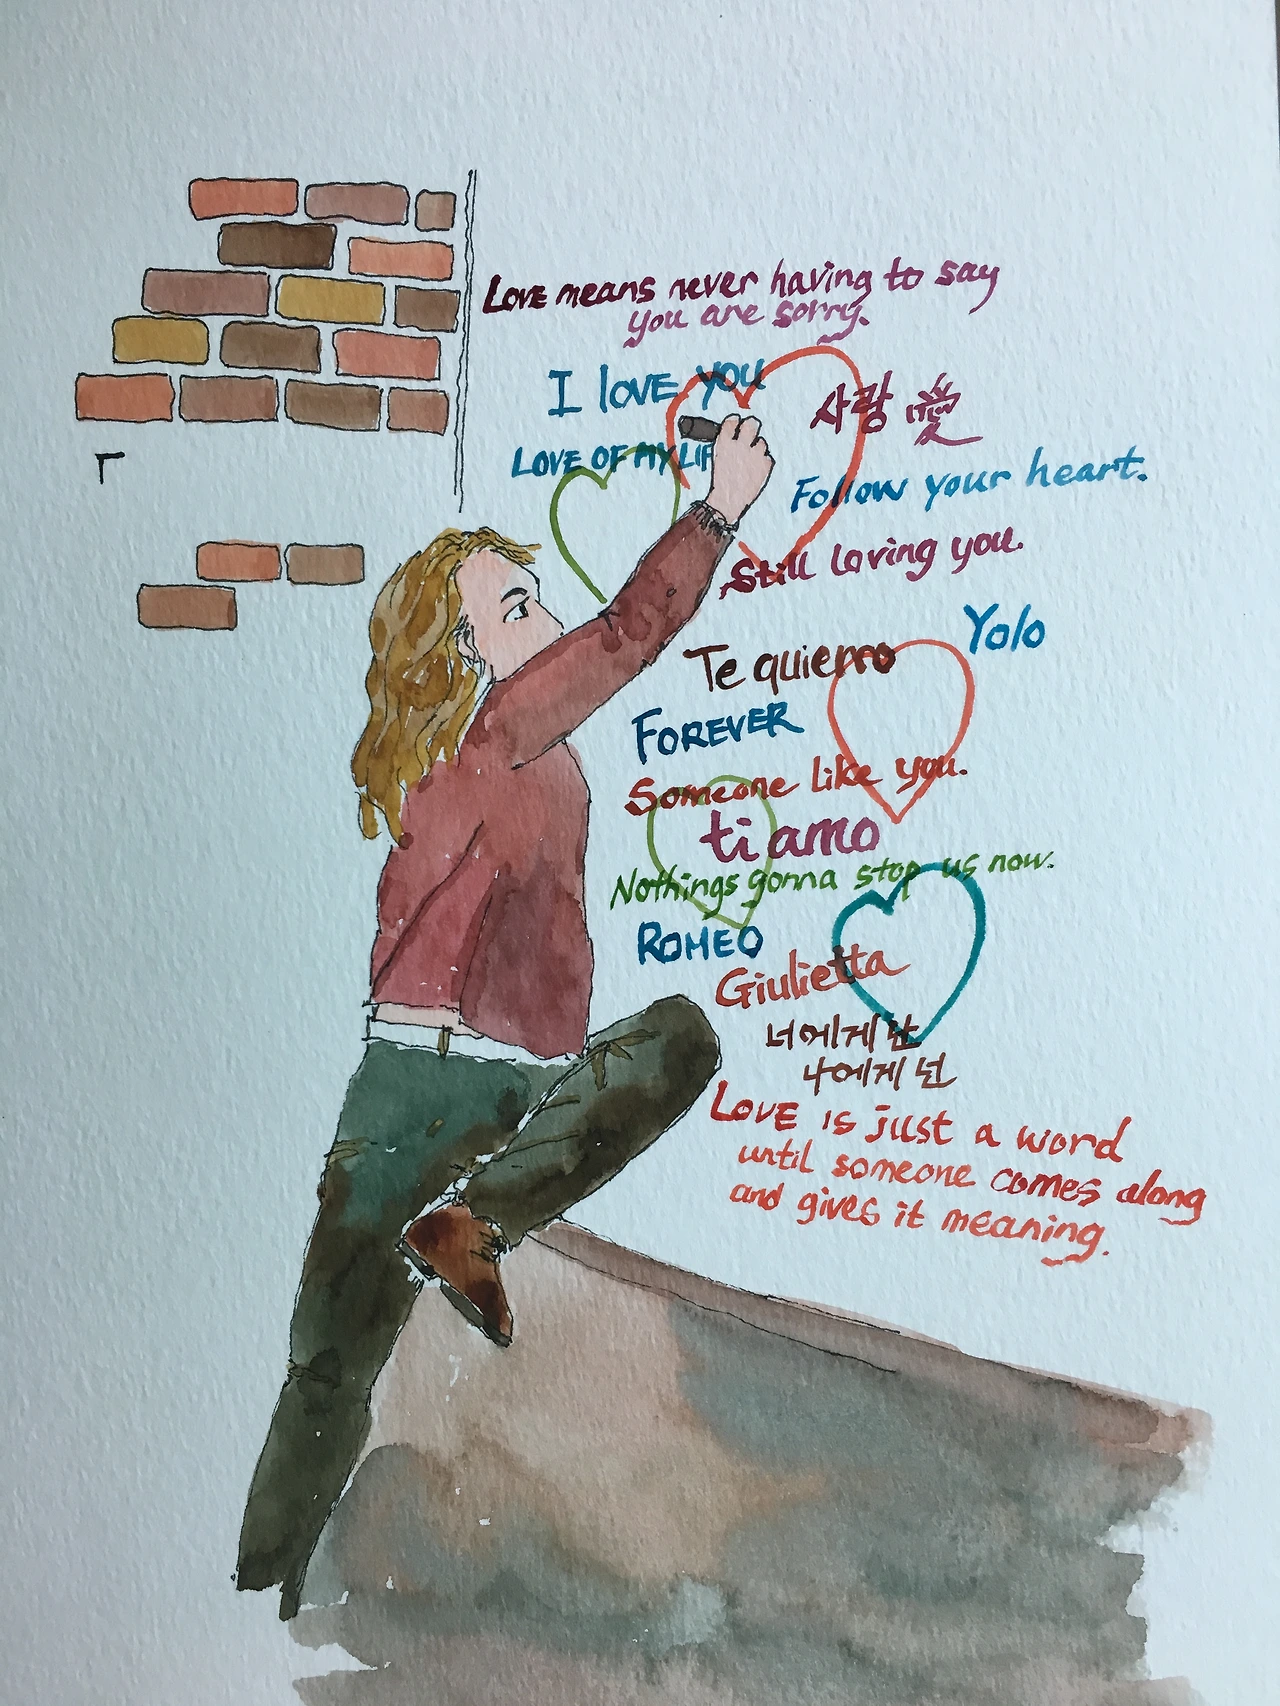 Love means never having to say
you are sorry.
I love you
LOVE OF MY LIF
사랑 愛
Follow your heart.
Still loving you.
Yolo
Te quierro
FOREVER
Someone like you.
ti amo
Nothings gonna stop us now.
ROMEO
Giulietta
너에게 난
나에게 넌
Love is just a word
until someone comes along
and gives it meaning.